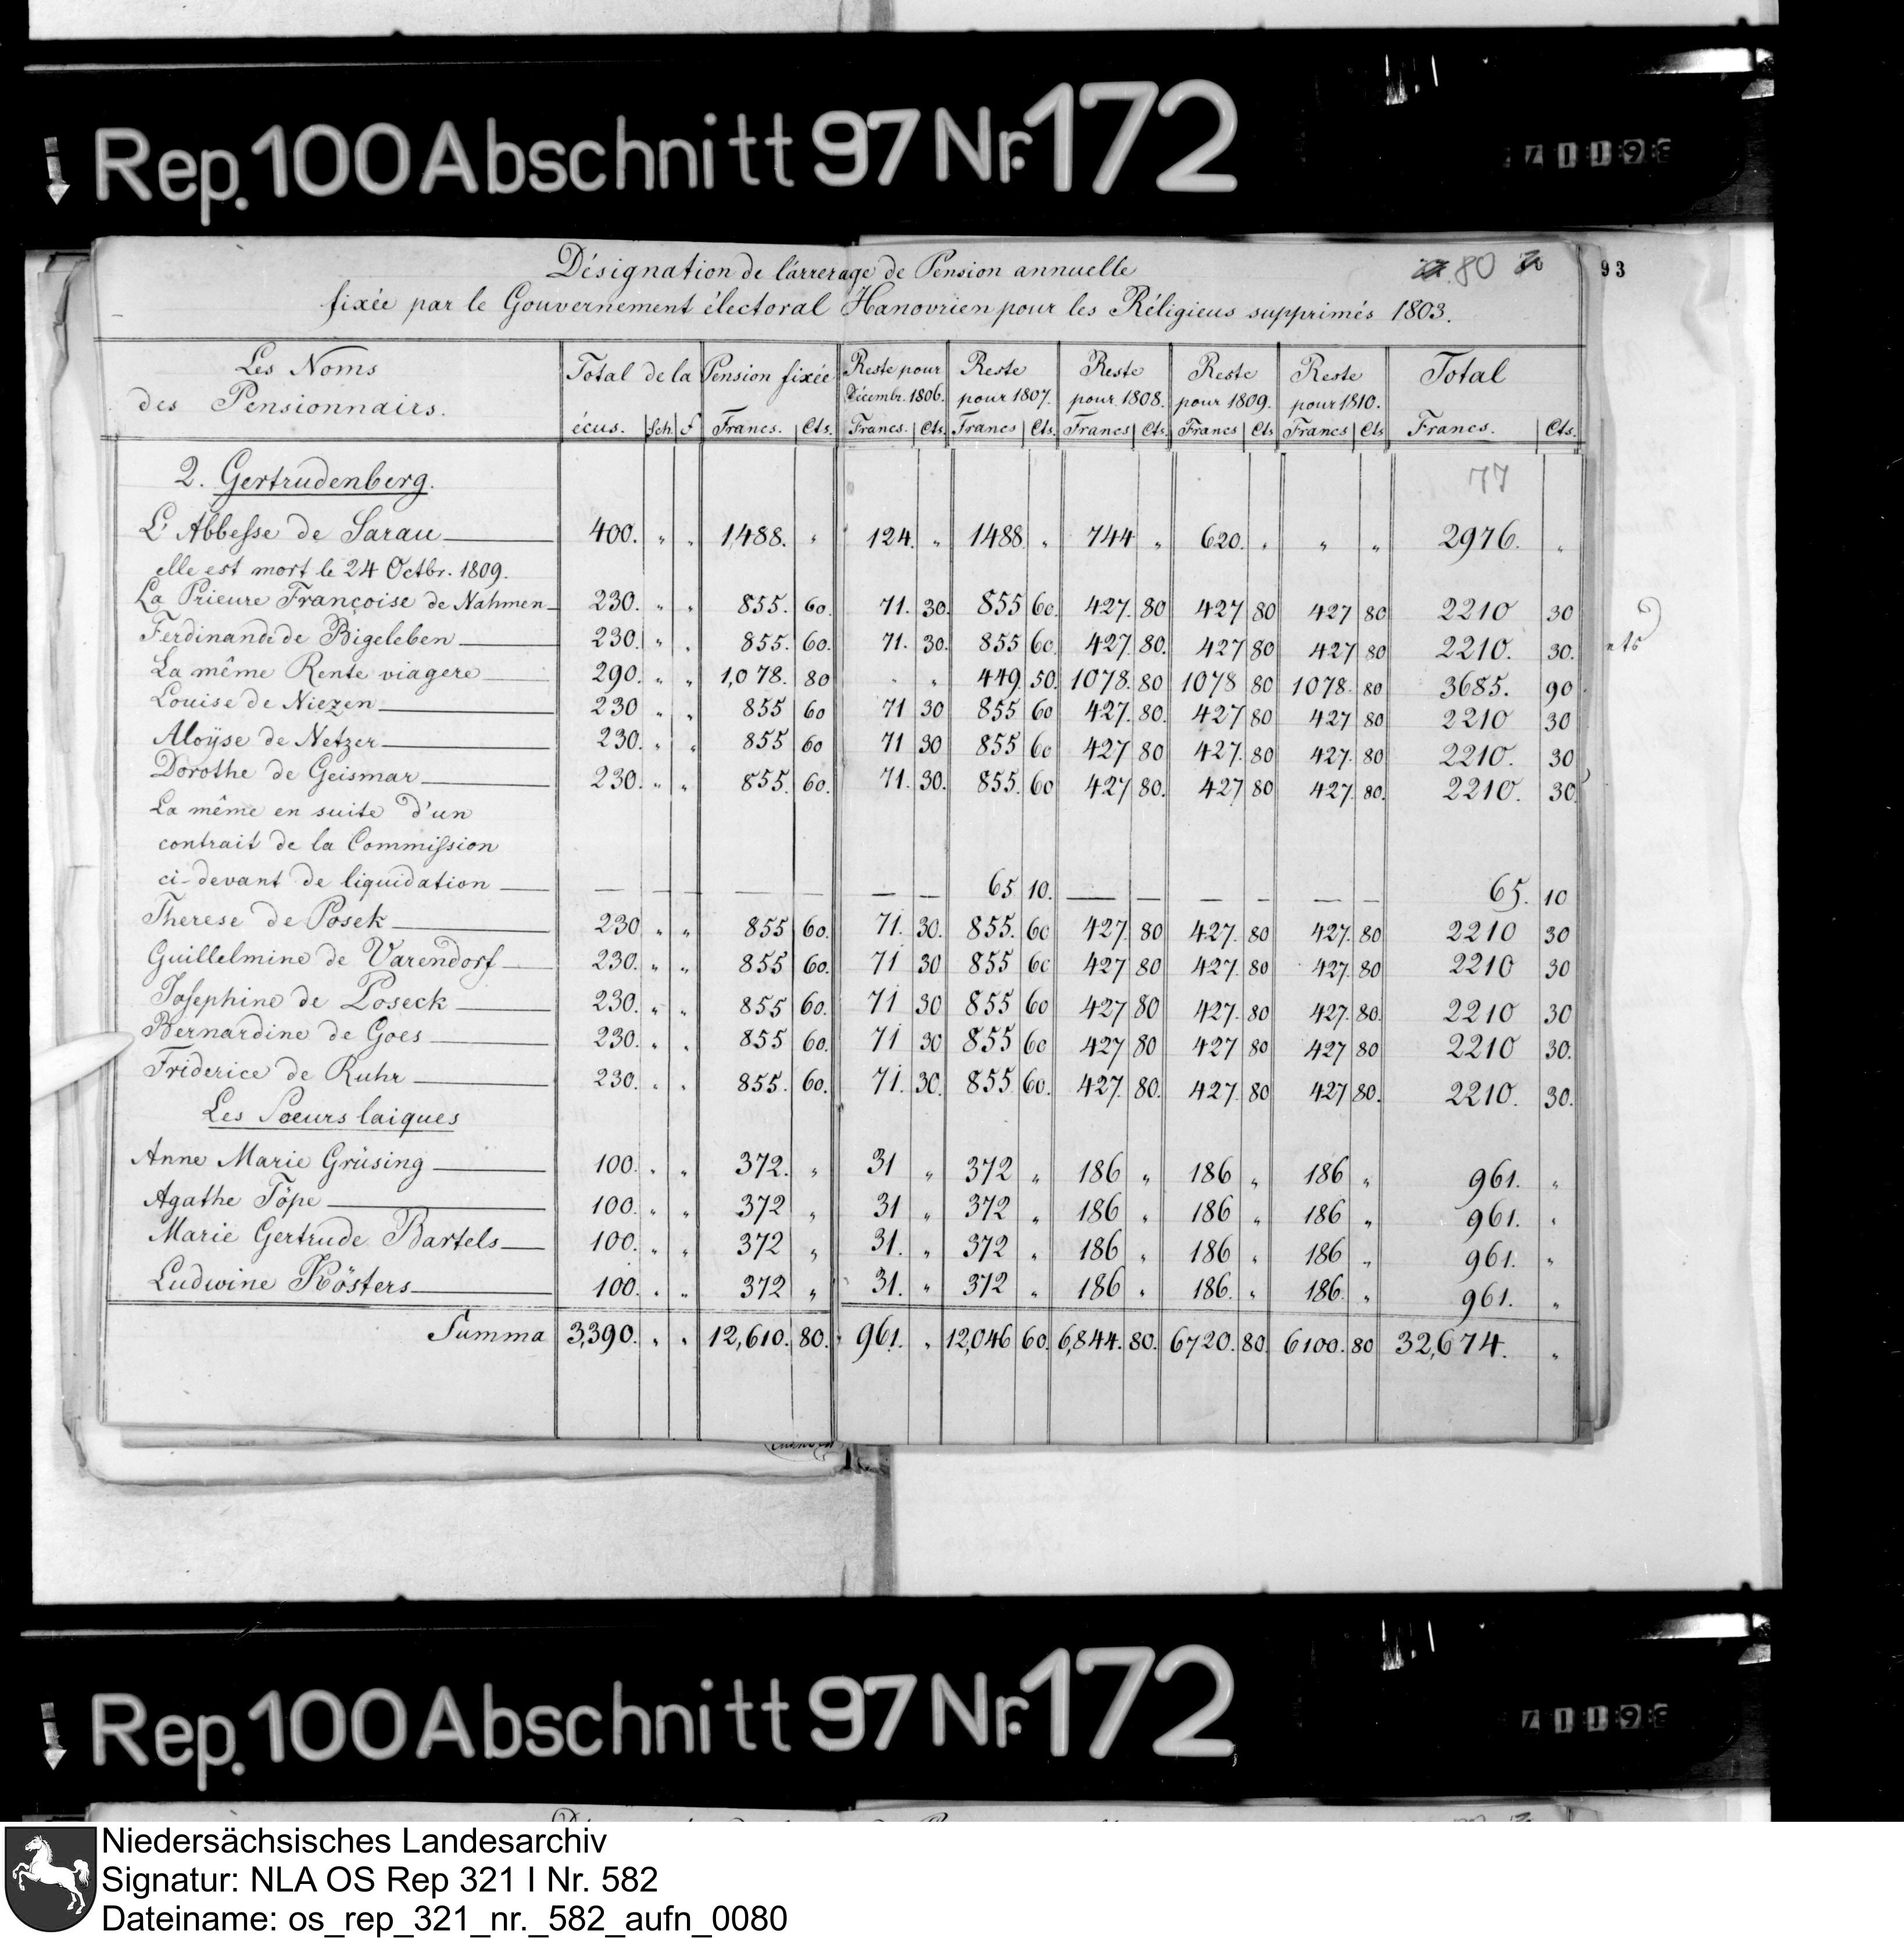 Rep. 100 Abschnitt 97 Nr. 172
Désignation de l'arrerage de Pension annuelle
80
93
fixée par le Gouvernement électoral Hanovrien pour les Réligieus supprimés 1803.
Les Noms des Pensionnairs. | Total de la Pension fixée | Reste pour Décembr. 1806. | Reste pour 1807. | Reste pour 1808. | Reste pour 1809. | Reste pour 1810. | Total
écus. | Sch. | ₰ | Francs. | Cts. | Francs. | Cts. | Francs | Cts. | Francs | Cts. | Francs | Cts | Francs | Cts | Francs. | Cts.
2. Gertrudenberg.
77
L'Abbesse de Sarau 400. " " 1,488. " 124. " 1488 " 744 " 620. " " " 2976. "
elle est mort le 24 Octbr. 1809.
La Prieure Françoise de Nahmen 230. " " 855. 60. 71. 30. 855 60. 427. 80 427 80 427 80 2210 30
Ferdinande de Bigeleben 230. " " 855. 60. 71. 30. 855 60. 427. 80. 427 80 427 80 2210. 30.
La même Rente viagere 290. " " 1,078. 80 " " 449. 50. 1078. 80 1078 80 1078. 80 3685. 90
Louise de Niezen 230 " " 855 60 71 30 855 60 427. 80. 427 80 427 80 2210 30
Aloÿse de Netzer 230. " " 855 60 71 30 855 60 427 80 427. 80 427. 80 2210. 30
Dorothe de Geismar 230. " " 855. 60. 71. 30. 855. 60 427 80. 427 80 427. 80. 2210. 30.
La même en suite d'un
contrait de la Commission
ci-devant de liquidation — — — — — — — 65 10. — — — — — — 65. 10
Therese de Posek 230 " " 855 60. 71. 30. 855. 60 427. 80 427. 80 427. 80 2210 30
Guillelmine de Varendorf 230. " " 855 60. 71 30 855 60 427 80 427. 80 427. 80 2210 30
Josephine de Poseck 230. " " 855 60. 71 30 855 60 427 80 427. 80 427. 80. 2210 30
Bernardine de Goes 230. " " 855 60. 71 30 855 60 427 80 427 80 427 80 2210 30.
Friderice de Ruhr 230. " " 855. 60. 71. 30. 855 60. 427. 80. 427. 80 427 80. 2210. 30.
Les Sœurs laiques
Anne Marie Grüsing 100. " " 372. " 31 " 372 " 186 " 186 " 186 " 961. "
Agathe Töpe 100. " " 372 " 31 " 372 " 186 " 186 " 186 " 961. "
Marie Gertrude Bartels 100. " " 372 " 31. " 372 " 186 " 186 " 186 " 961. "
Ludwine Kösters 100. " " 372 " 31. " 372 " 186 " 186. " 186. " 961. "
Summa 3,390. " " 12,610. 80. 961. " 12,046 60. 6,844. 80. 6720. 80. 6100. 80 32,674. "
Rep. 100 Abschnitt 97 Nr. 172
Niedersächsisches Landesarchiv
Signatur: NLA OS Rep 321 I Nr. 582
Dateiname: os_rep_321_nr._582_aufn_0080